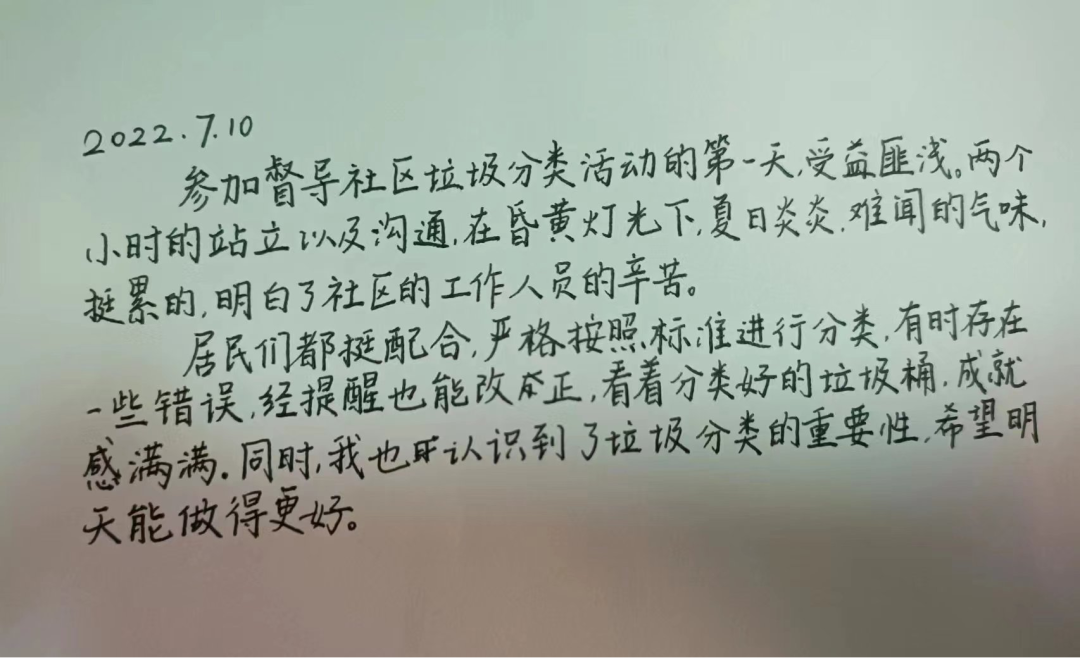 2022.7.10
参加督导社区垃圾分类活动的第一天,受益匪浅。两个
小时的站立以及沟通,在昏黄灯光下,夏日炎炎,难闻的气味,
挺累的,明白了社区的工作人员的辛苦。
居民们都挺配合,严格按照标准进行分类,有时存在
一些错误,经提醒也能改正,看着分类好的垃圾桶,成就
感满满。同时,我也认识到了垃圾分类的重要性,希望明
天能做得更好。